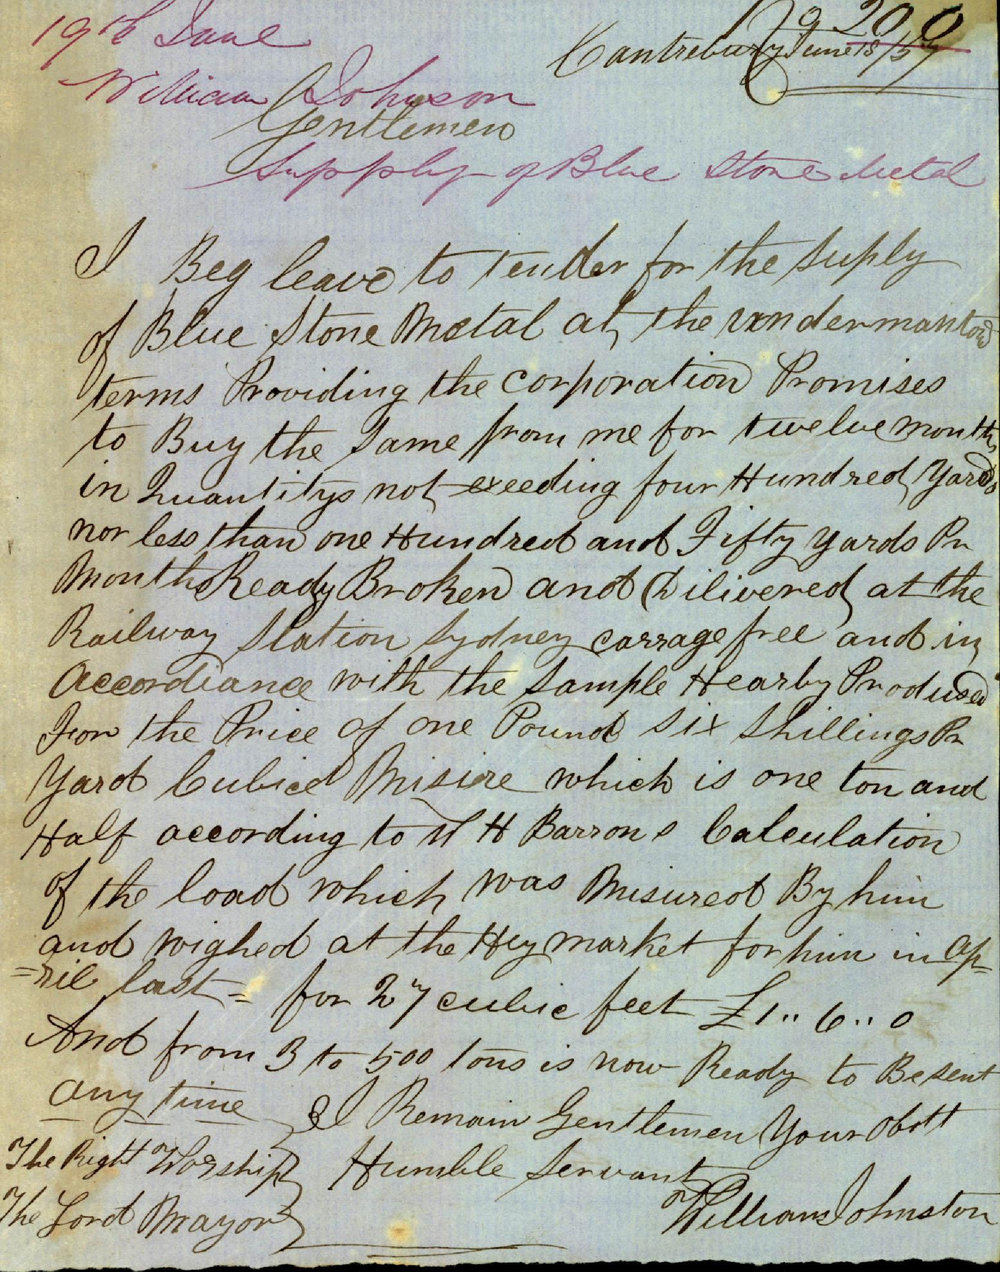 19th June
Cantrebury June 18/57
William Johnson
Gentlemen
Supply of Blue Stone Metal
I Beg leave to tender for the Suply
of Blue Stone Metal at the undermantond
terms Providing the Corporation Promises
to Buy the Same from me for twelve months
in Quantitys not exeeding four Hundred Yards
nor less than one Hundred and Fifty yards Pr
Month Ready Broken and Dilivered at the
Railway Station Sydney carrage free and in
Accordiance with the Sample Hearby Prodused
For the Price of one Pound Six Shillings Pr
Yard Cubice Misire which is one ton and
Half according to H Barrons Calculation
of the load which was Misured By him
and wighed at the Heymarket for him in Ap-
=ril last = for 27 cubic feet £1..6..0
And from 3 to 500 tons is now Ready to Be sent
any time I Remain Gentlemen Your Obtt
The Right Worship Humble Servant
The Lord Mayor William Johnston